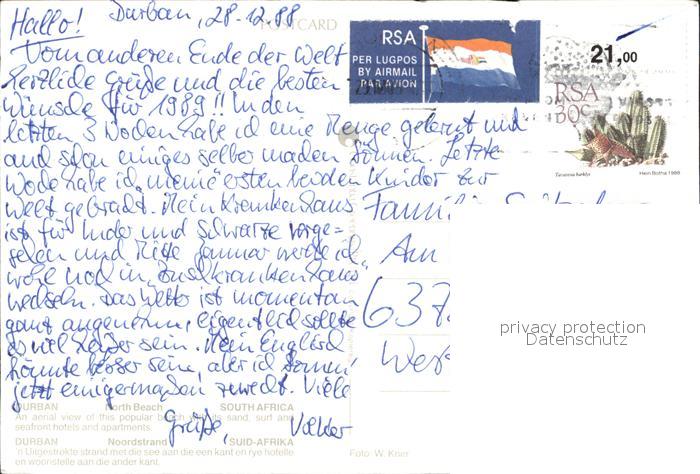 Hallo! Durban, 28.12.88
POSTCARD
Vom anderen Ende der Welt
herzliche Grüße und die besten
Wünsche für 1989!! In den
letzten 3 Wochen habe ich eine Menge gelernt und
auch schon einiges selber machen können. Letzte
Woche habe ich "meine" ersten beiden Kinder zur
Welt gebracht. Mein Krankenhaus
ist für Inder und Schwarze vorge=
sehen und Mitte Januar werde ich
wohl noch in "Buschkrankenhaus"
wechseln. Das Wetter ist momentan
ganz angenehm, eigentlich sollte
es viel heißer sein. Mein Englisch
könnte besser sein, aber ich komm'
jetzt einigermaßen zurecht. Viele
Grüße, Volker
RSA
PER LUGPOS
BY AIRMAIL
PAR AVION
21,00
RSA
30c
Hein Botha 1988
Familie
Am
637
privacy protection
Datenschutz
DURBAN North Beach SOUTH AFRICA
An aerial view of this popular beach with its sand, surf and
seafront hotels and apartments.
DURBAN Noordstrand SUID-AFRIKA
'n Uitgestrekte strand met die see aan die een kant en rye hotelle
en woonstelle aan die ander kant.
Foto: W. Knier